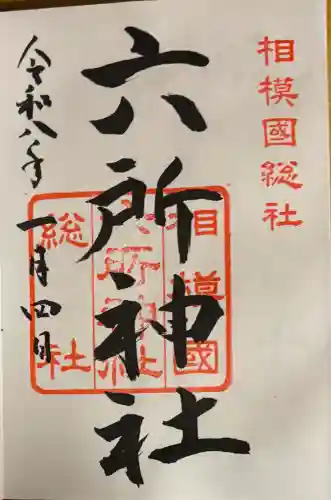 相模國総社
六所神社
相模國
六所神社
総社
令和八年
一月四日